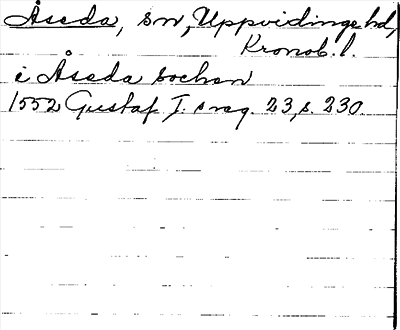 Åseda, sn, Uppvidinge hd,
Kronob. l.
i Åseda sochen
1552 Gustaf I:s reg. 23, s. 230.